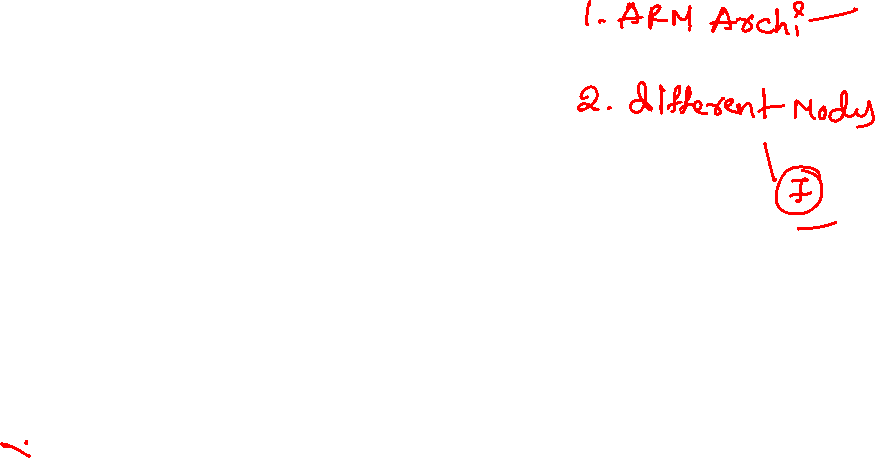 1. ARM Archi
2. different Modes
I